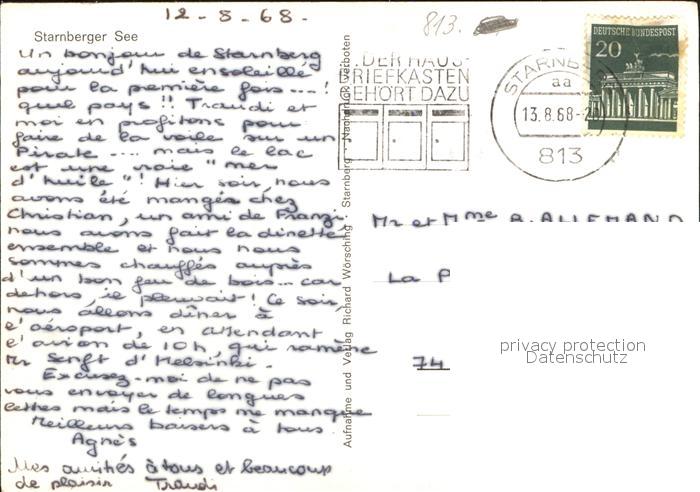 12-8-68-
813.
Starnberger See
Un bonjour de Starnberg
aujourd'hui ensoleillé
pour la première fois...!
quel pays!! Traudi et
moi en profitons pour
faire de la voile sur un
Pirate.... mais le lac
est une vraie "mer
d'huile"! Hier soir, nous
avons été mangés chez
Christian, un ami de Franzi.
nous avons fait la dinette
ensemble et nous nous
sommes chauffés auprès
d'un bon feu de bois... car
dehors, il pleuvait! Ce soir,
nous allons dîner à
l'aéroport, en attendant
l'avion de 10h, qui ramène
Mr Senft d'Helsinki.
Excusez-moi de ne pas
vous envoyer de longues
lettres mais le temps me manque
Meilleurs baisers à tous.
Agnès
Mes amitiés à tous et beaucoup
de plaisir Traudi
Aufnahme und Verlag Richard Wörsching Starnberg - Nachdruck verboten
DER HAUS-
BRIEFKASTEN
GEHÖRT DAZU
STARNBERG
aa
13.8.68-20
813
DEUTSCHE BUNDESPOST
20
Mr et Mme A. ALLEMAND
La P
74
privacy protection
Datenschutz